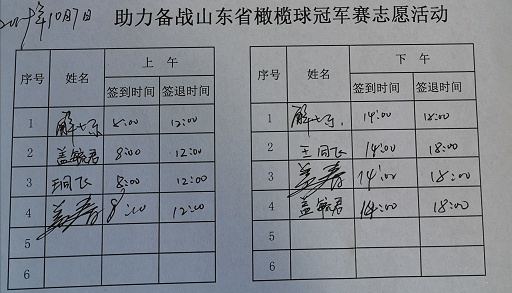 10月7日 助力备战山东省橄榄球冠军赛志愿活动
序号 姓名 上 午
签到时间 签退时间
1 8:00 12:00
2 盖毓君 8:00 12:00
3 王同飞 8:00 12:00
4 8:00 12:00
5
6
序号 姓名 下 午
签到时间 签退时间
1 14:00 18:00
2 王同飞 14:00 18:00
3 14:00 18:00
4 盖毓君 14:00 18:00
5
6